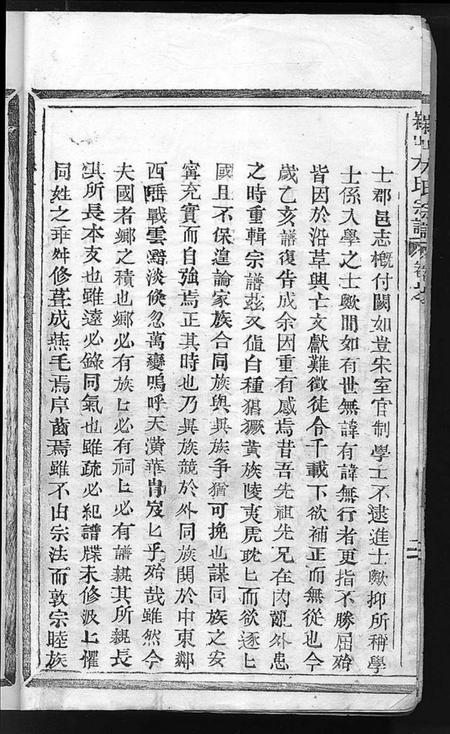 士郡邑志槪付闕如豈宋室官制學士不逮進士歟抑所稱學
士係入學之士歟間如有世無諱有諱無行者更指不勝屈殆
皆因於沿革興亡文獻難徵徒令千載下欲補正而無從也今
歲乙亥譜復告成余因重有感焉昔吾先祖先兄在內亂外患
之時重輯宗譜茲又値白種猖獗黃族陵夷虎眈〻而欲逐〻
國且不保遑論家族合同族與異族争猶可挽也謀同族之安
寗充實而自强焉正其時也乃異族競於外同族鬩於中東鄰
西隣戰雲黯淡倏忽萬變嗚呼天潢華胄岌〻乎殆哉雖然今
夫國者鄕之積也鄕必有族〻必有祠〻必有譜親其所親長
其所長本支也雖遠必錄同氣也雖疏必紀譜牒未修汲〻懼
同姓之乖舛修葺成燕毛焉序齒焉雖不由宗法而敦宗睦族
方氏宗譜